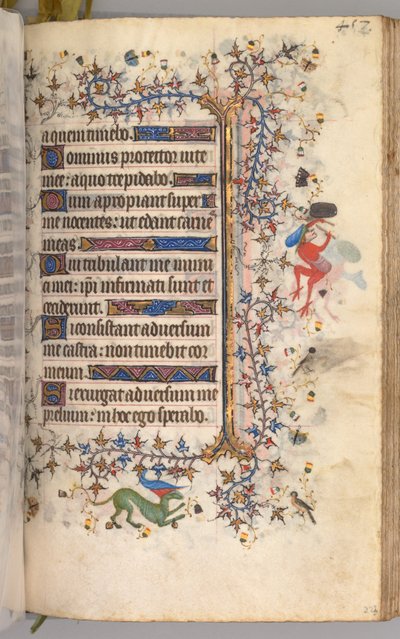 452
a quem timebo.
Dominus protector uite
mee: a quo trepidabo.
Dum apropiant super
me nocentes: ut edant carnes
meas.
Qui tribulant me inimi
ci mei: ipsi infirmati sunt et
ceciderunt.
Si consistant adversum
me castra: non timebit cor
meum.
Si exurgat adversum me
prelium: in hoc ego sperabo.